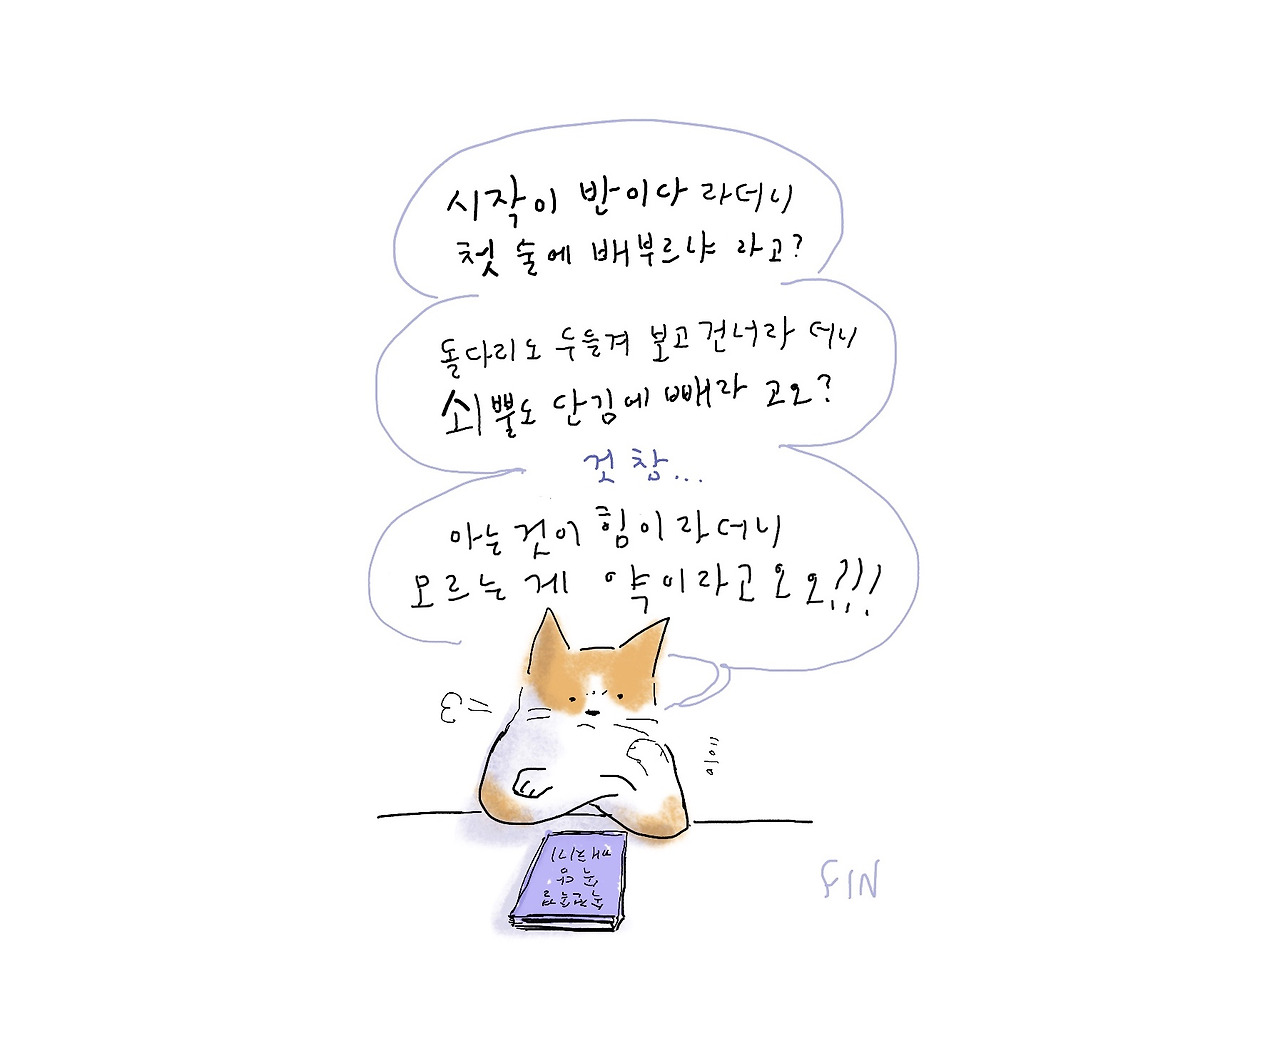 시작이 반이다 라더니
첫 술에 배부르냐 라고?
돌다리도 두들겨 보고 건너라 더니
쇠뿔도 단김에 빼라 고오?
것 참...
아는 것이 힘이라더니
모르는 게 약이라고오오?!!
음
FIN